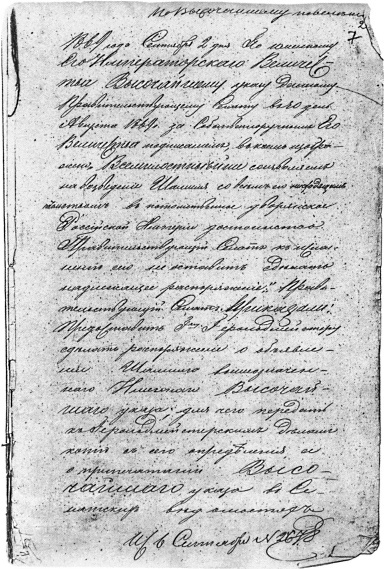 По Высочайшему повелению
7
1869 года Сентября 2 дня По именному
Его Императорскаго Величес-
тва Высочайшему указу данному
Правительствующему Сенату въ 30 день
Августа 1869 г. за Собственноручным Его
Величества подписанием, въ коем изобра-
жено: Всемилостивейше соизволяем
на возведение Шамиля со всем его нисходящим
потомством въ потомственное дворянское
Российской Империи достоинство
Правительствующий Сенатъ къ испол-
нению его не оставитъ сделать
надлежащее распоряжение; Прави-
тельствующий Сенатъ Приказали:
Предоставить Герольдмейстеру
сделать распоряжение о объявле-
нии Шамилю вышеозначен-
наго Именнаго Высочай-
шаго указа; для чего передать
къ Герольдмейстерским делам
копию съ его определения и
о припечатании Высо-
чайшаго указа въ Се-
натских ведомостях
Сентября №